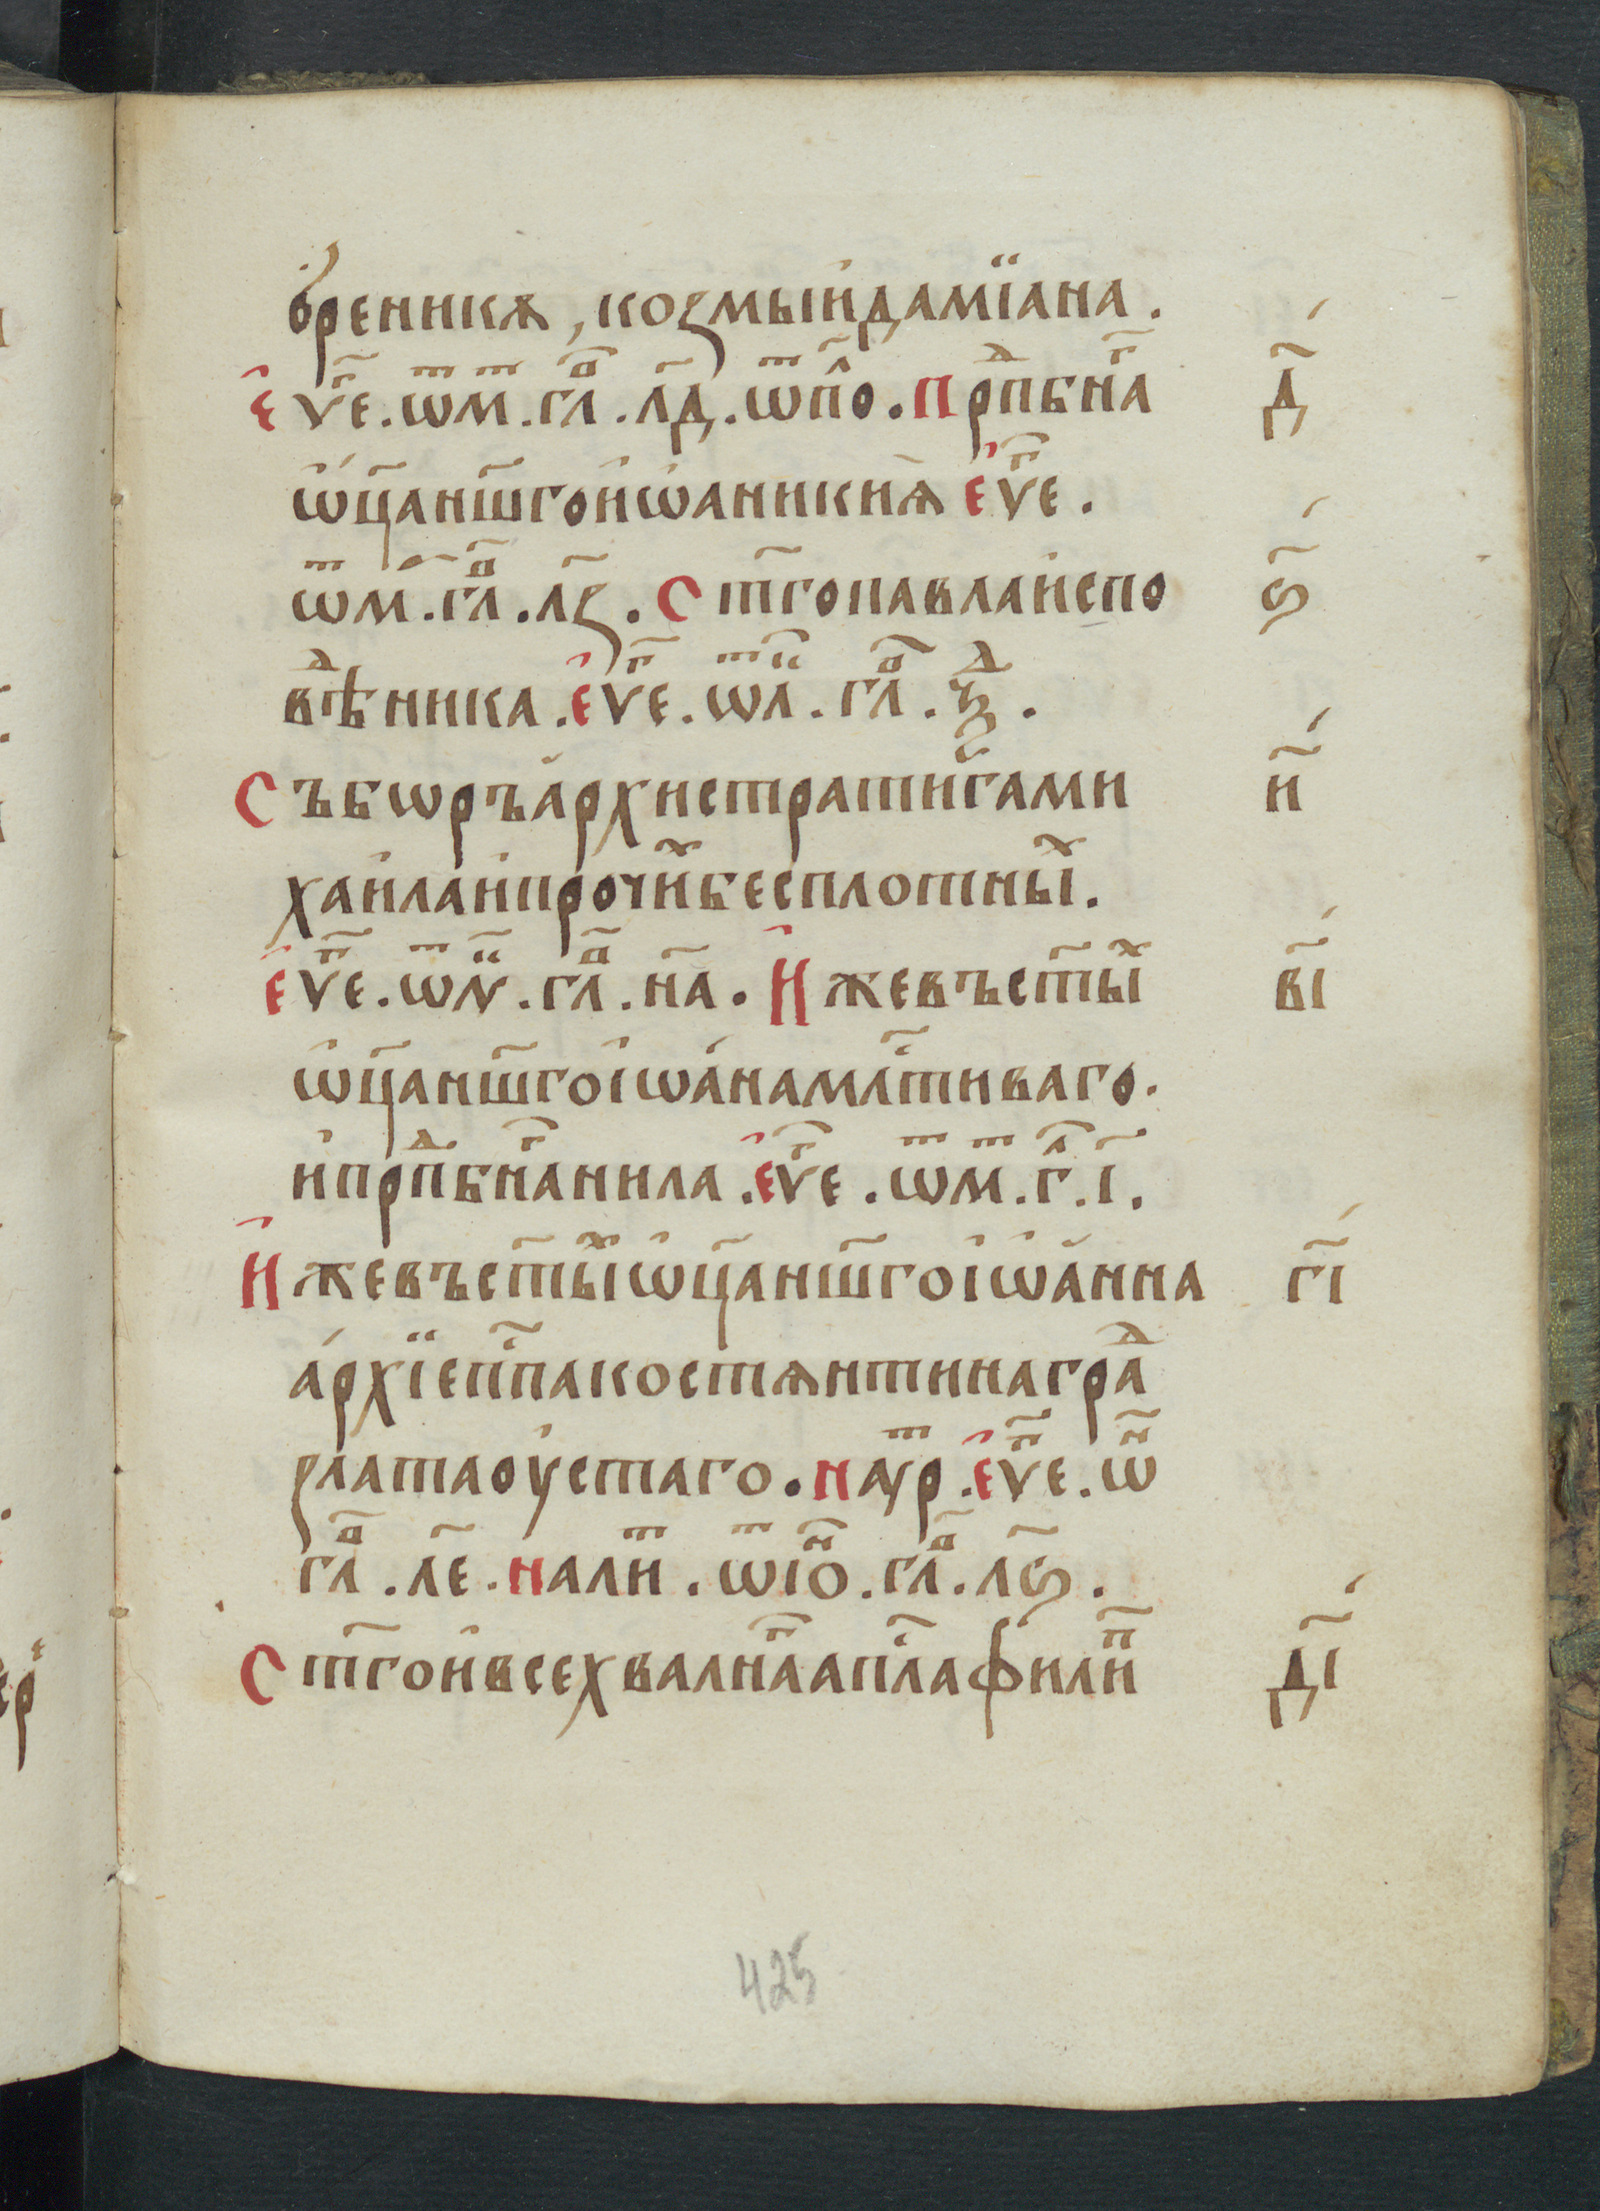 ѻ҆ребникѧ, коꙁмы и҆ дамїана.
е҆ѵⷢ҇е. ѿ м. гл҃в. л҃д. ѿ пⷪ҇ло. прⷣпбнⷢ҇а д҃
ѿц҃а нш҃го и҆ѡаникиѧ е҆ѵⷢ҇е.
ѿ м. гл҃в. л҃ꙁ. Ст҃го павла и҆спо ѕ҃
вѣⷣника. е҆ѵⷢ҇е. ѿ л. гл҃в. ѯⷣ.
Съборъ а҆рхистратиⷢ҇га ми и҃
хаила и҆ прочиⷯ бесплотныⷯ.
е҆ѵⷢ҇е. ѿ л. гл҃в. н҃а. И҆же въ ст҃ыⷯ в҃і
ѿц҃а нш҃го і҆ѡа́на млⷭ҇тиваго.
и҆ прⷣпбнⷢ҇а нила. е҆ѵⷢ҇е. ѿ м. гл҃. і҃.
И҆же въ ст҃ыⷯ ѿц҃а нш҃го і҆ѡа́нна г҃і
а҆рхїепⷭ҇па костѧнтина граⷣ
ꙁлатаоустаго. на ѹⷮр. е҆ѵⷢ҇е. ѿ н
гл҃в. л҃е. на лиⷮ. ѿ і҆ѡⷩ. гл҃в. л҃ѕ.
Ст҃го и҆ всехвалнⷢ҇а апⷭ҇ла филиⷫ д҃і
425